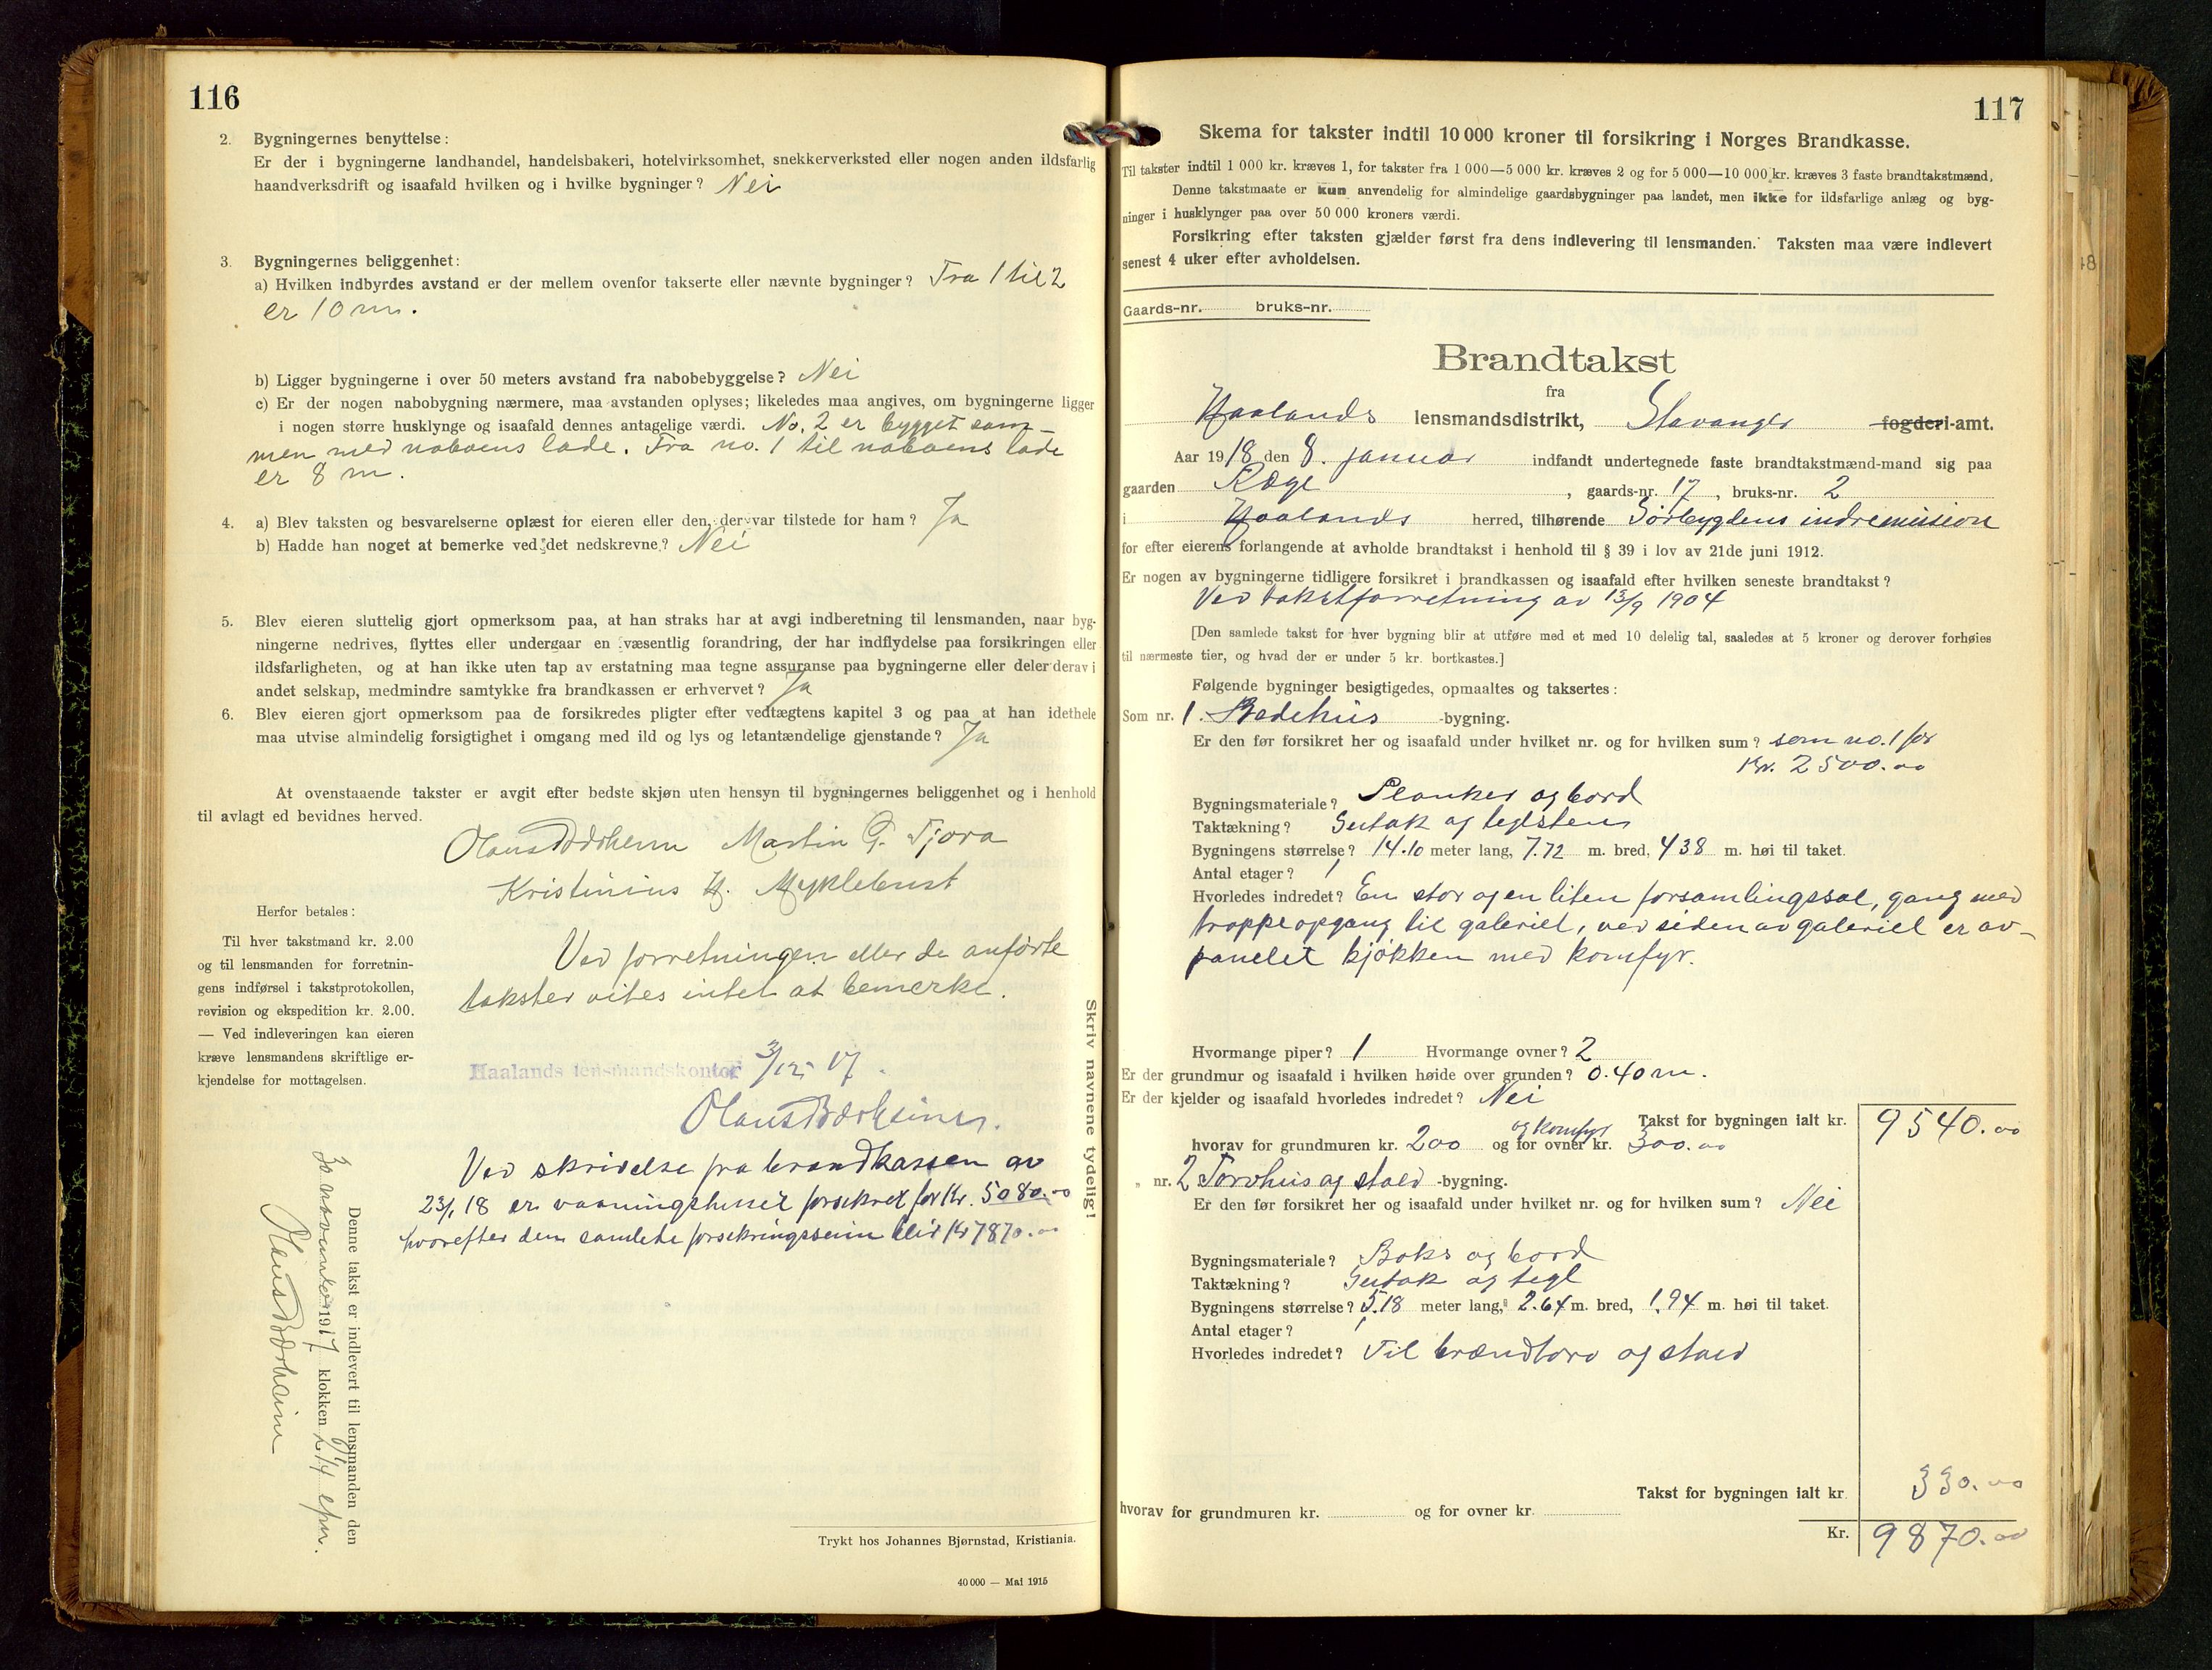 116
2. Bygningernes benyttelse:
Er der i bygningerne landhandel, handelsbakeri, hotelvirksomhet, snekkerverksted eller nogen anden ildsfarlig
haandverksdrift og isaafald hvilken og i hvilke bygninger? Nei
3. Bygningernes beliggenhet:
a) Hvilken indbyrdes avstand er der mellem ovenfor takserte eller nævnte bygninger? Fra 1 til 2
er 10 m.
b) Ligger bygningerne i over 50 meters avstand fra nabobebyggelse? Nei
c) Er der nogen nabobygning nærmere, maa avstanden oplyses; likeledes maa angives, om bygningerne ligger
i nogen større husklynge og isaafald dennes antagelige værdi. No. 2 er bygget sam-
men med naboens lade. Fra no. 1 til naboens lade
er 8 m.
4. a) Blev taksten og besvarelserne oplæst for eieren eller den, der var tilstede for ham? Ja
b) Hadde han noget at bemerke ved det nedskrevne? Nei
5. Blev eieren sluttelig gjort opmerksom paa, at han straks har at avgi indberetning til lensmanden, naar byg-
ningerne nedrives, flyttes eller undergaar en væsentlig forandring, der har indflydelse paa forsikringen eller
ildsfarligheten, og at han ikke uten tap av erstatning maa tegne assuranse paa bygningerne eller deler derav i
andet selskap, medmindre samtykke fra brandkassen er erhvervet? Ja
6. Blev eieren gjort opmerksom paa de forsikredes pligter efter vedtægtens kapitel 3 og paa at han idethele
maa utvise almindelig forsigtighet i omgang med ild og lys og letantændelige gjenstande? Ja
At ovenstaaende takster er avgit efter bedste skjøn uten hensyn til bygningernes beliggenhet og i henhold
til avlagt ed bevidnes herved.
Olaus Bærheim Martin G. Tjora
Kristinius H. Myklebust
Herfor betales:
Til hver takstmand kr. 2.00
og til lensmanden for forretnin-
gens indførsel i takstprotokollen,
revision og ekspedition kr. 2.00.
— Ved indleveringen kan eieren
kræve lensmandens skriftlige er-
kjendelse for mottagelsen.
Ved forretningen eller de anførte
takster vites intet at bemerke.
Haalands lensmandskontor 3/12 17.
Olaus Bærheim.
Ved skrivelse fra brandkassen av
23/1 18 er vaaningshuset forsikret for Kr. 5080.00
hvorefter den samlede forsikringssum blir Kr 7870.00
Denne takst er indlevert til lensmanden den
30 november 1917 klokken 2 1/4 epm.
Olaus Bærheim
Skriv navnene tydelig!
Trykt hos Johannes Bjørnstad, Kristiania.
40 000 — Mai 1915
117
Skema for takster indtil 10 000 kroner til forsikring i Norges Brandkasse.
Til takster indtil 1 000 kr. kræves 1, for takster fra 1 000—5 000 kr. kræves 2 og for 5 000—10 000 kr. kræves 3 faste brandtakstmænd.
Denne takstmaate er kun anvendelig for almindelige gaardsbygninger paa landet, men ikke for ildsfarlige anlæg og byg-
ninger i husklynger paa over 50 000 kroners værdi.
Forsikring efter taksten gjælder først fra dens indlevering til lensmanden. Taksten maa være indlevert
senest 4 uker efter avholdelsen.
Gaards-nr. bruks-nr.
Brandtakst
fra
Haalands lensmandsdistrikt, Stavanger fogderi-amt.
Aar 1918 den 8. januar indfandt undertegnede faste brandtakstmænd-mand sig paa
gaarden Ræge, gaards-nr. 17, bruks-nr. 2
i Haalands herred, tilhørende Sørbygdens indremission
for efter eierens forlangende at avholde brandtakst i henhold til § 39 i lov av 21de juni 1912.
Er nogen av bygningerne tidligere forsikret i brandkassen og isaafald efter hvilken seneste brandtakst?
Ved takstforretning av 13/9 1904
[Den samlede takst for hver bygning blir at utføre med et med 10 delelig tal, saaledes at 5 kroner og derover forhøies
til nærmeste tier, og hvad der er under 5 kr. bortkastes.]
Følgende bygninger besigtigedes, opmaaltes og taksertes:
Som nr. 1. Bedehus -bygning.
Er den før forsikret her og isaafald under hvilket nr. og for hvilken sum? som no. 1 for
Kr. 2500.00
Bygningsmateriale? Planker og bord
Taktækning? Sutak og teglsten
Bygningens størrelse? 14.10 meter lang, 7.72 m. bred, 4 38 m. høi til taket.
Antal etager? 1
Hvorledes indredet? En stor og en liten forsamlingssal, gang med
trappeopgang til galeriet, ved siden av galeriet er av-
panelet kjøkken med komfyr.
Hvormange piper? 1 Hvormange ovner? 2
Er der grundmur og isaafald i hvilken høide over grunden? 0.40 m.
Er der kjelder og isaafald hvorledes indredet? Nei
Takst for bygningen ialt kr. 9540.00
hvorav for grundmuren kr. 200 og for ovner og komfyr kr. 300.00
" nr. 2 Torvhus og stald -bygning.
Er den før forsikret her og isaafald under hvilket nr. og for hvilken sum? Nei
Bygningsmateriale? Boks og bord
Taktækning? Sutak og tegl
Bygningens størrelse? 5.18 meter lang, 2.64 m. bred, 1.94 m. høi til taket.
Antal etager? 1
Hvorledes indredet? Til brændtorv og stald
Takst for bygningen ialt kr. 330.00
hvorav for grundmuren kr. og for ovner kr.
Kr. 9870.00